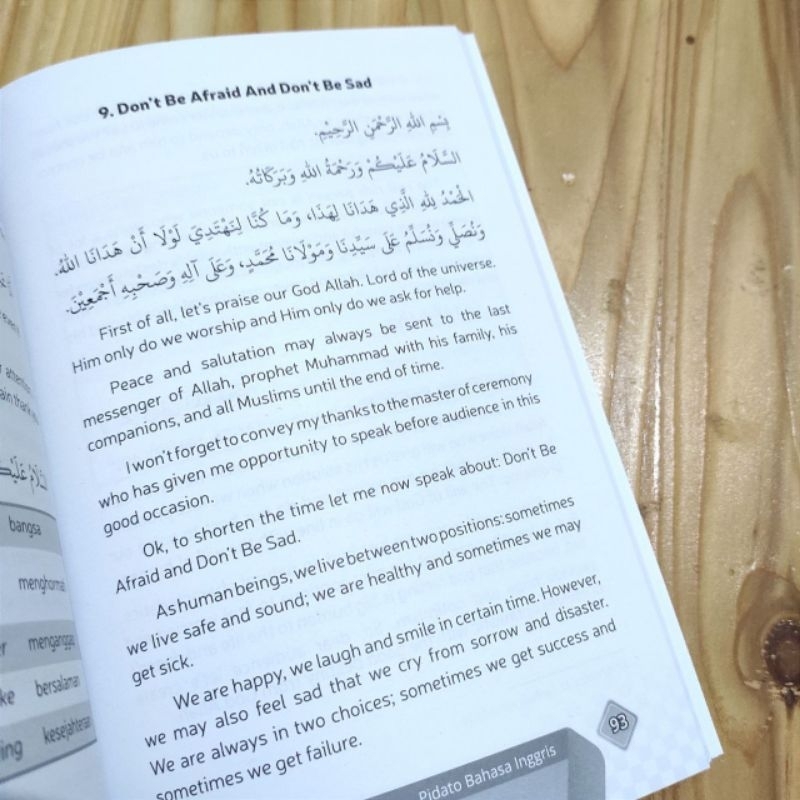 9. Don't Be Afraid And Don't Be Sad
بِسْمِ اللهِ الرَّحْمَنِ الرَّحِيْمِ.
السَّلَامُ عَلَيْكُمْ وَرَحْمَةُ اللهِ وَبَرَكَاتُهُ.
الْحَمْدُ لِلهِ الَّذِي هَدَانَا لِهَذَا، وَمَا كُنَّا لِنَهْتَدِيَ لَوْلَا أَنْ هَدَانَا اللهُ.
وَنُصَلِّ وَنُسَلِّمُ عَلَى سَيِّدِنَا وَمَوْلَانَا مُحَمَّدٍ، وَعَلَى آلِهِ وَصَحْبِهِ أَجْمَعِيْنَ.
First of all, let's praise our God Allah. Lord of the universe.
Him only do we worship and Him only do we ask for help.
Peace and salutation may always be sent to the last
messenger of Allah, prophet Muhammad with his family, his
companions, and all Muslims until the end of time.
I won't forget to convey my thanks to the master of ceremony
who has given me opportunity to speak before audience in this
good occasion.
Ok, to shorten the time let me now speak about: Don't Be
Afraid and Don't Be Sad.
As human beings, we live between two positions: sometimes
we live safe and sound; we are healthy and sometimes we may
get sick.
We are happy, we laugh and smile in certain time. However,
we may also feel sad that we cry from sorrow and disaster.
We are always in two choices; sometimes we get success and
sometimes we get failure.
Pidato Bahasa Inggris
93
bangsa
bersalaman